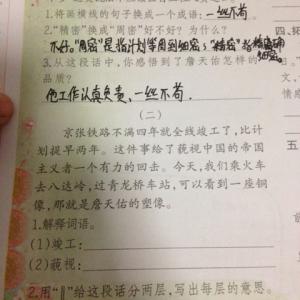 1.将画横线的句子换成一个成语:一丝不苟
2.“精密”换成“周密”好不好?为什么?
不好。“周密”是指计划等周到细密;“精密”
3.从这段话中,你感悟到了詹天佑怎样的
品质?
他工作认真负责、一丝不苟.
(二)
京张铁路不满四年就全线竣工了,比计
划提早两年。这件事给了藐视中国的帝国
主义者一个有力的回击。今天,我们乘火车
去八达岭,过青龙桥车站,可以看到一座铜
像,那就是詹天佑的塑像。
1.解释词语。
(1)竣工:
(2)藐视:
2.用“‖”给这段话分两层,写出每层的意思。